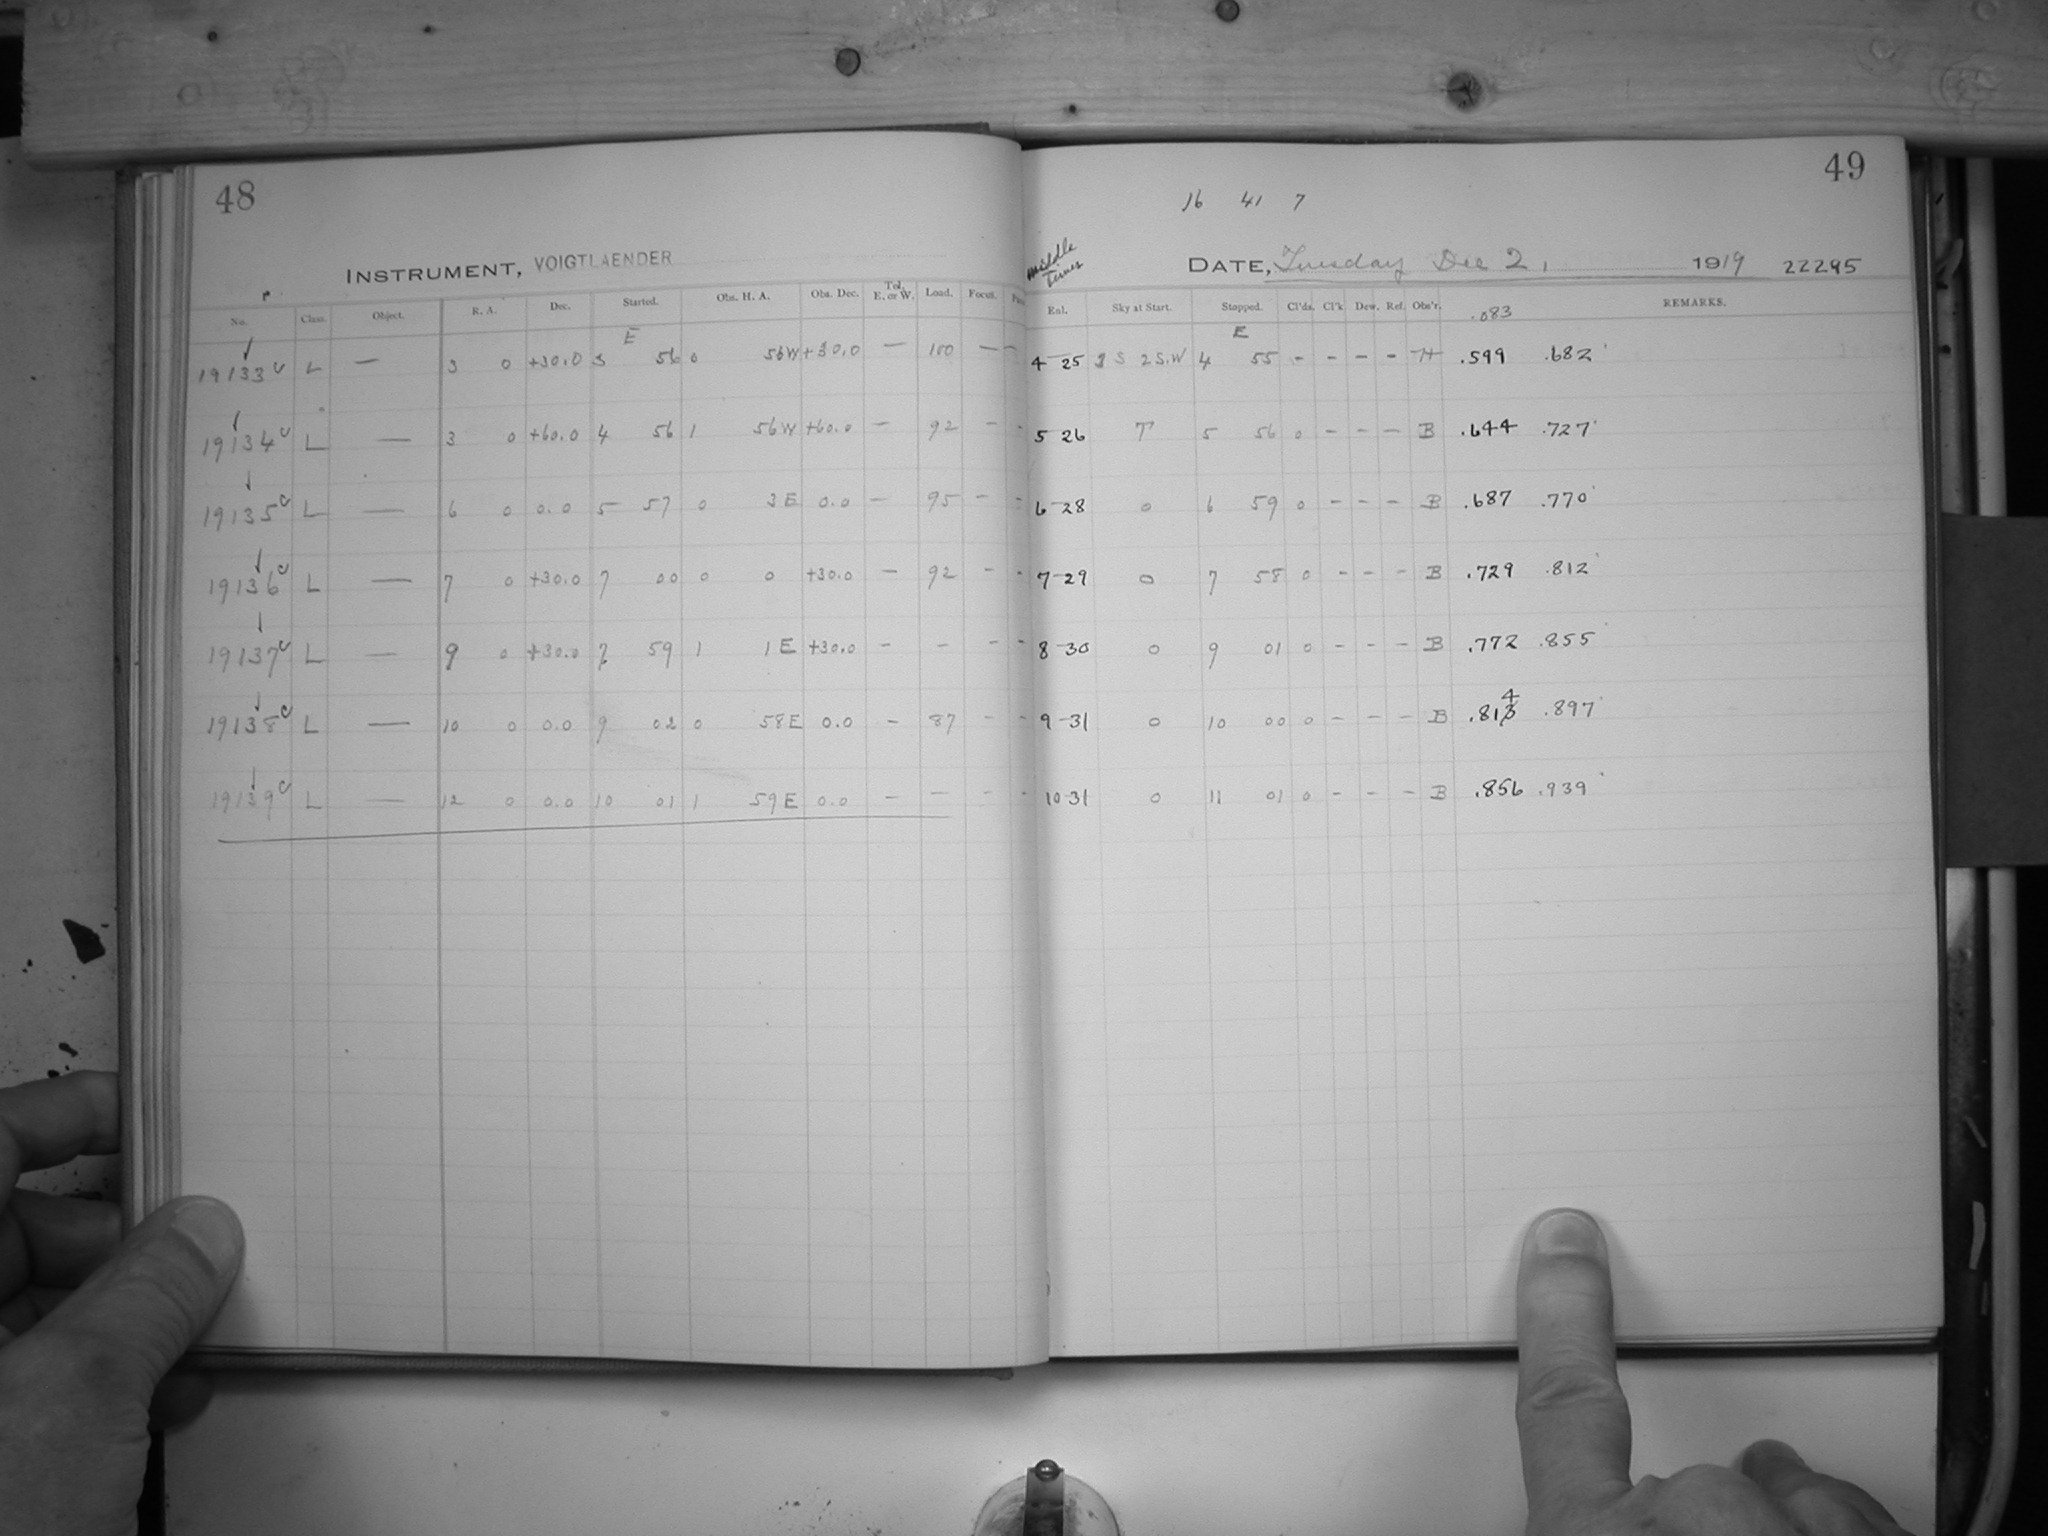 48
INSTRUMENT, VOIGTLAENDER
No. Class. Object. R. A. Dec. Started. Obs. H. A. Obs. Dec. Tel. E. or W. Load. Focus.
E
19133 L — 3 0 +30.0 3 56 0 56W +30.0 — 100 — —
19134 L — 3 0 +60.0 4 56 1 56W +60.0 — 92 - -
19135 L — 6 0 0.0 5 57 0 3E 0.0 — 95 - -
19136 L — 7 0 +30.0 7 00 0 0 +30.0 — 92 - -
19137 L — 9 0 +30.0 7 59 1 1E +30.0 - - - -
19138 L — 10 0 0.0 9 02 0 58E 0.0 - 87 - -
19139 L — 12 0 0.0 10 01 1 59E 0.0 — — — -
49
16 41 7
middle times
DATE, Tuesday Dec 2, 1919 22295
Enl. Sky at Start. Stopped. Cl'ds. Cl'k Dew. Ref. Obs'r. REMARKS.
.083
E
4 25 3 S 2 S.W 4 55 - - - - H .599 .682
5 26 T 5 56 0 - - - B .644 .727
6 28 0 6 59 0 - - - B .687 .770
7-29 0 7 58 0 - - - B .729 .812
8-30 0 9 01 0 - - - B .772 .855
4
9-31 0 10 00 0 - - - B .813 .897
10-31 0 11 01 0 - - - B .856 .939